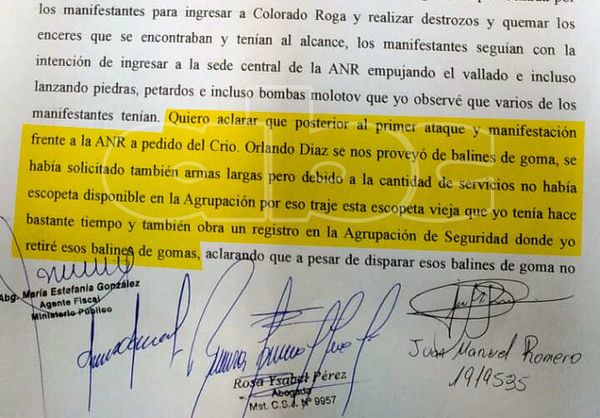 los manifestantes para ingresar a Colorado Roga y realizar destrozos y quemar los
enceres que se encontraban y tenían al alcance, los manifestantes seguían con la
intención de ingresar a la sede central de la ANR empujando el vallado e incluso
lanzando piedras, petardos e incluso bombas molotov que yo observé que varios de los
manifestantes tenían. Quiero aclarar que posterior al primer ataque y manifestación
frente a la ANR a pedido del Crio. Orlando Diaz se nos proveyó de balines de goma, se
había solicitado también armas largas pero debido a la cantidad de servicios no había
escopeta disponible en la Agrupación por eso traje esta escopeta vieja que yo tenía hace
bastante tiempo y también obra un registro en la Agrupación de Seguridad donde yo
retiré esos balines de gomas, aclarando que a pesar de disparar esos balines de goma no
abc
Abg. María Estefanía González
Agente Fiscal
Ministerio Público
Rosa Ysabel Pérez
Abogada
Mat. C.S.J. Nº 9957
Manuel Romero
1919535